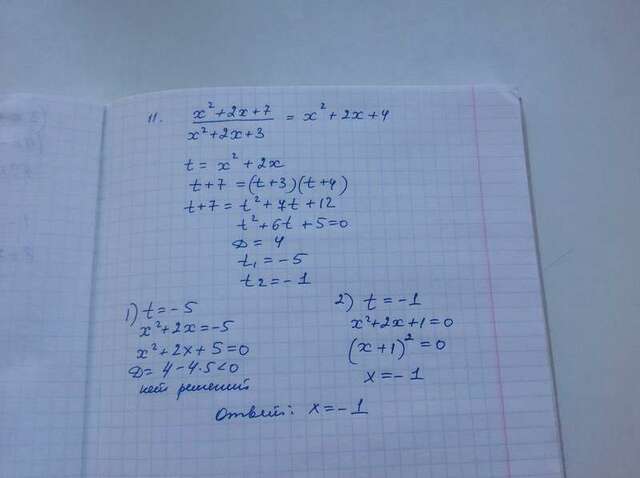 11. x²+2x+7 / x²+2x+3 = x²+2x+4
t = x²+2x
t+7 = (t+3)(t+4)
t+7 = t²+7t+12
t²+6t+5=0
D= 4
t₁ = -5
t₂ = -1
1) t=-5
x²+2x=-5
x²+2x+5=0
D= 4-4·5<0
нет решений
2) t=-1
x²+2x+1=0
(x+1)²=0
x=-1
Ответ: x=-1